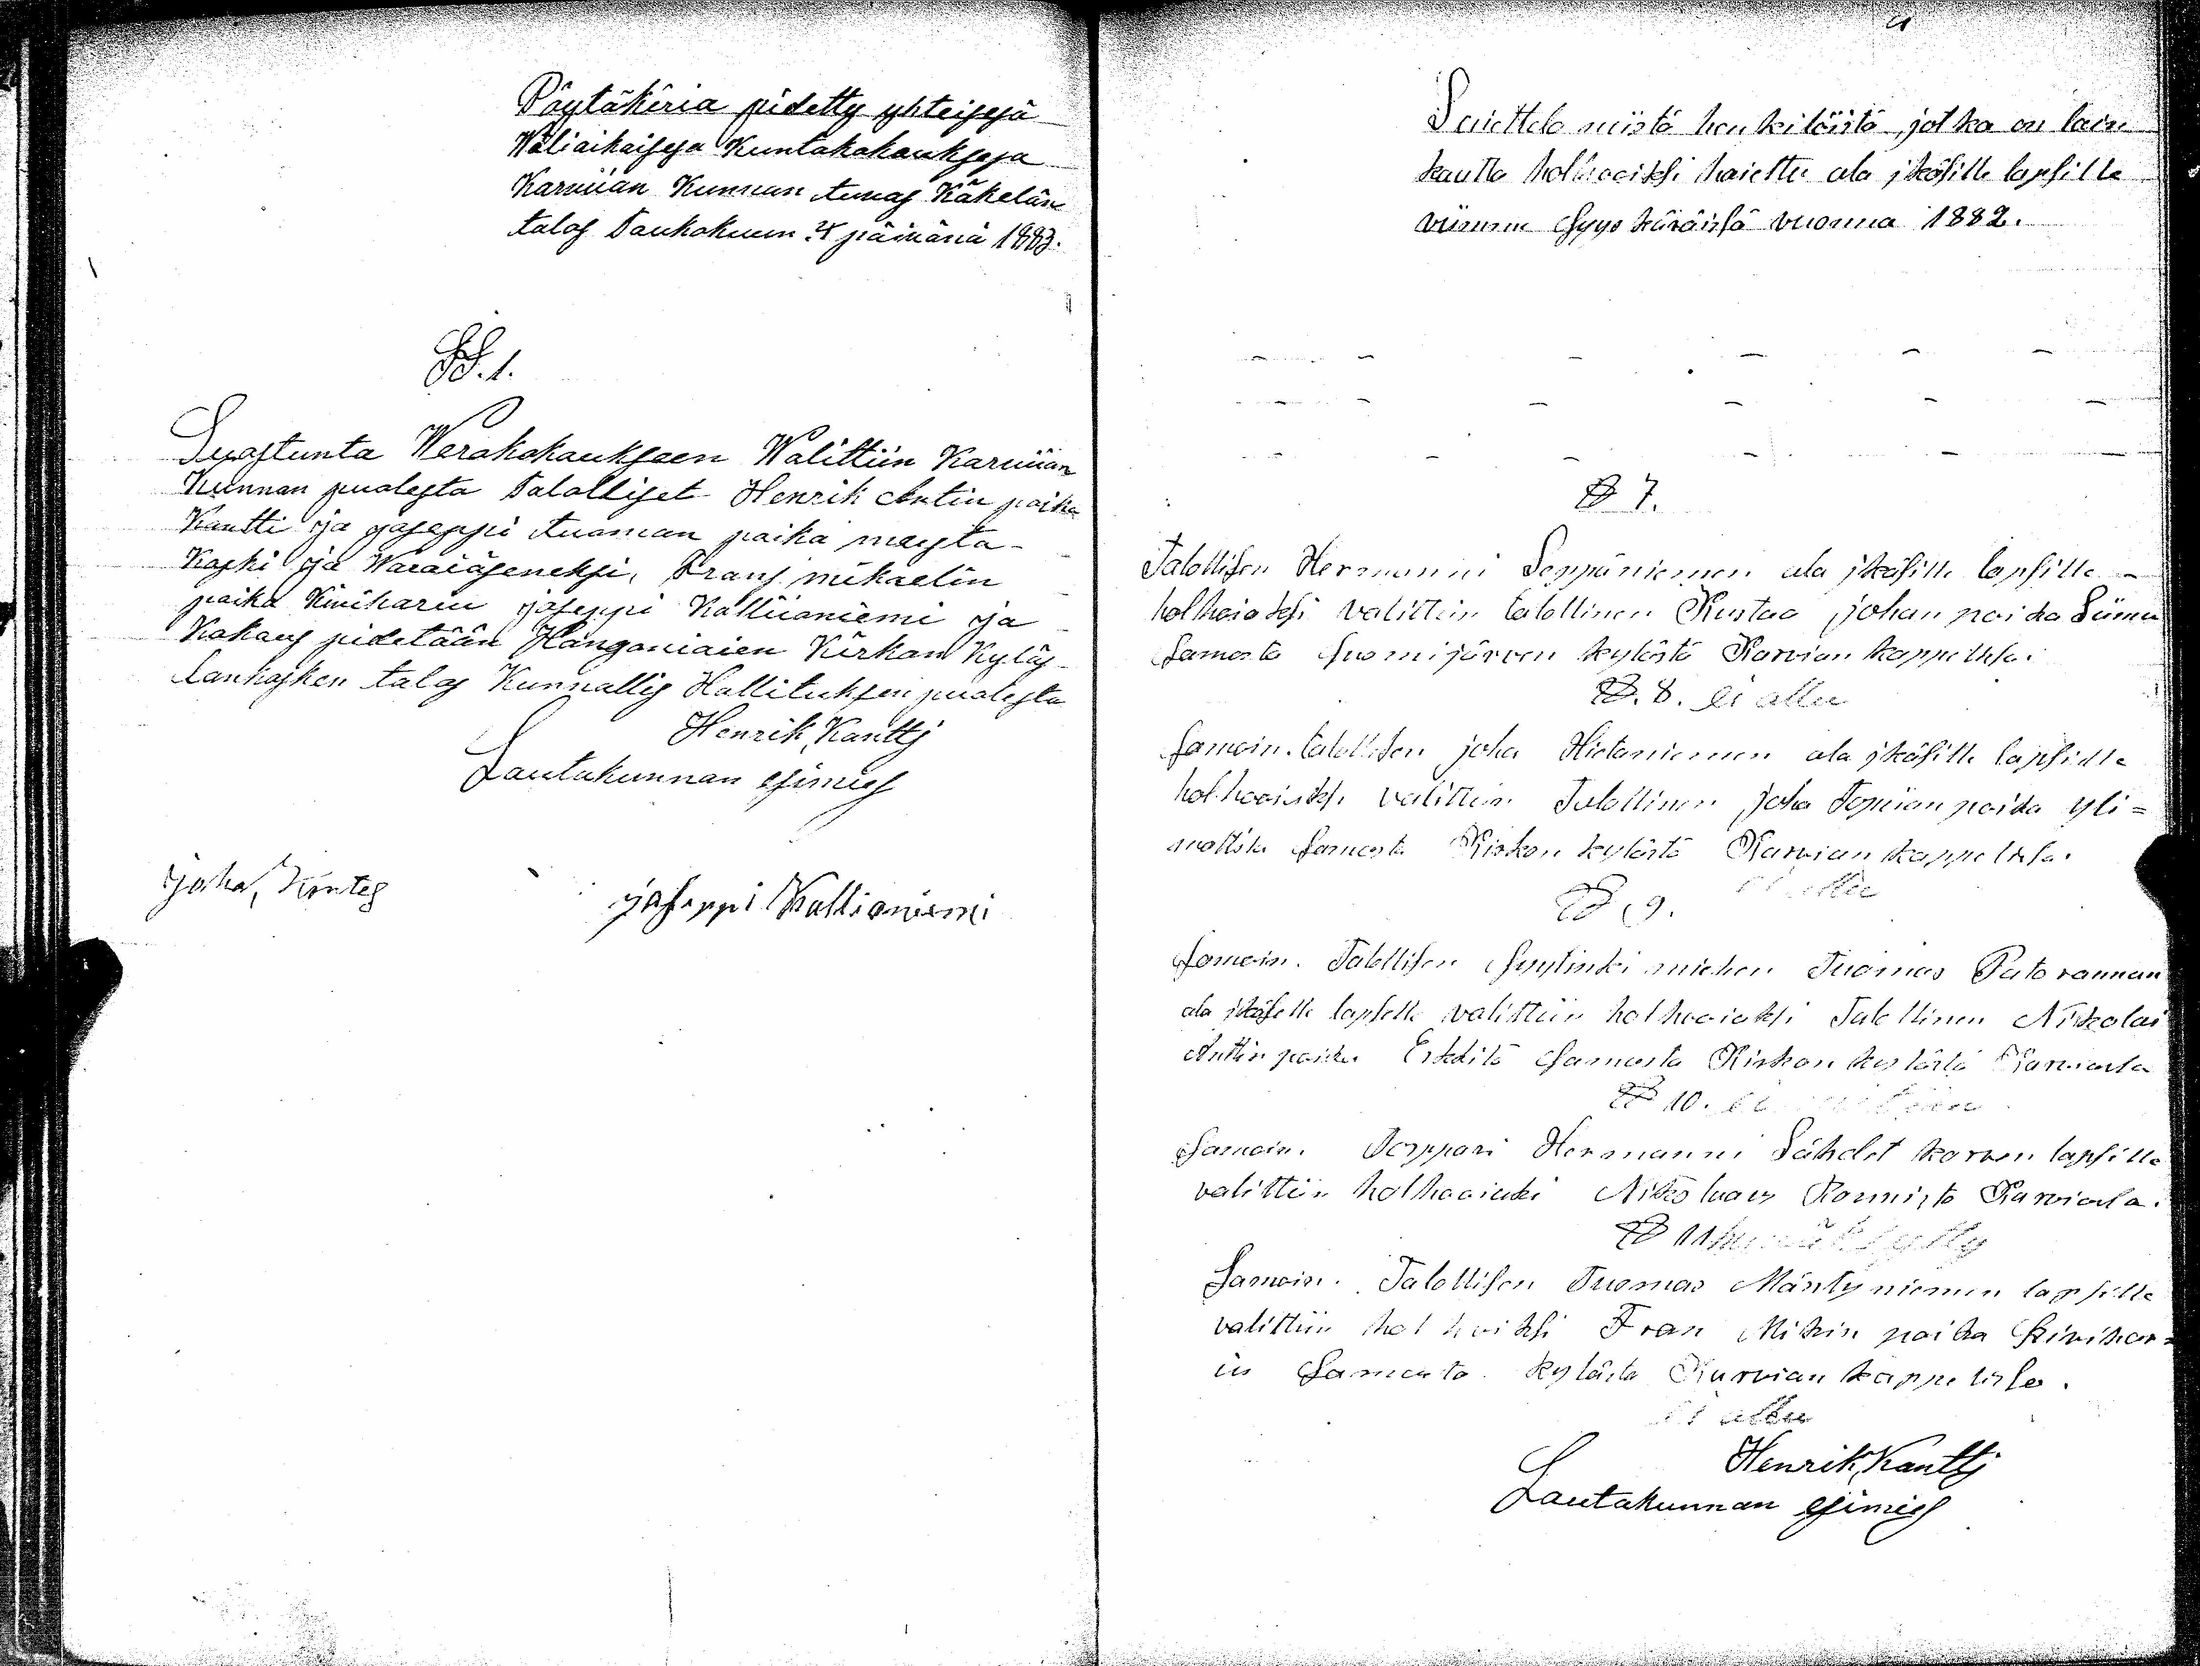 Pöytäkiria pidetty yhteisesä
Wäliaikaisesa Kuntakokouksesa
Karwian Kunnan tuwas Käkelän
talos Toukokuun 24 päiwänä 1883.
§§. 1.
Suostunta Werokokoukseen Walittiin Karwian
Kunnan puolesta Talolliset Henrik Antin poika
Kantti ja joseppi tuoman poika musta-
Koski ja Waraiäseneksi, Frans mikaelin
poika Kivihariu joseppi Kallioniemi ja
Kokous pidetään Hongoniaien Kirkon Kyläs
lankosken talos Kunnallis Hallituksen puolesta
Henrik Kantti
Lautakunnan esimies
joha,
joseppi Kallioniemi
Luettelo niistä henkilöistä, jotka on lain
kautta holhooiksi haiettu ala ikäsille lapsille
viimme Syys käräisä vuonna 1882.
§ 7.
Talollisen Hermanni Seppäniemen ala ikäsille lapsille
holhoiaksi valittiin talollinen Kustaa johan poika Liimu
Samasta Suomijärven kylästä Karvian kappelisa.
§. 8. ei allu
Samoin. talollisen joha Hietaniemen ala ikäsille lapsille
holhooiaksi valittiin Talollinen joha Topiian poika yli=
mattila Samasta Kirkon kylästä Karvian kappelisa.
allu
§ 9.
Samoin. Talollisen Syytinki miehen Tuomas Pato rannan
ala ikäselle lapselle valittiin holhooiaksi Talollinen Nikolai
Anttin poika Erkkilä Samasta Kirkon kylästä Karviasta
§ 10.
Samoin. Torppari Hermanni Lähdet korven lapsille
valittiin holhooiaksi Nikolaus Rannisto Karviasta.
§ 11 hyväksytty
Samoin. Talollisen Tuomas Mäntyniemen lapsille
valittiin holhoiksi Fran Mikin poika Kivihar=
iu Samasta kylästä Karvian kappelisa.
ei allu
Henrik Kantti
Lautakunnan esimies